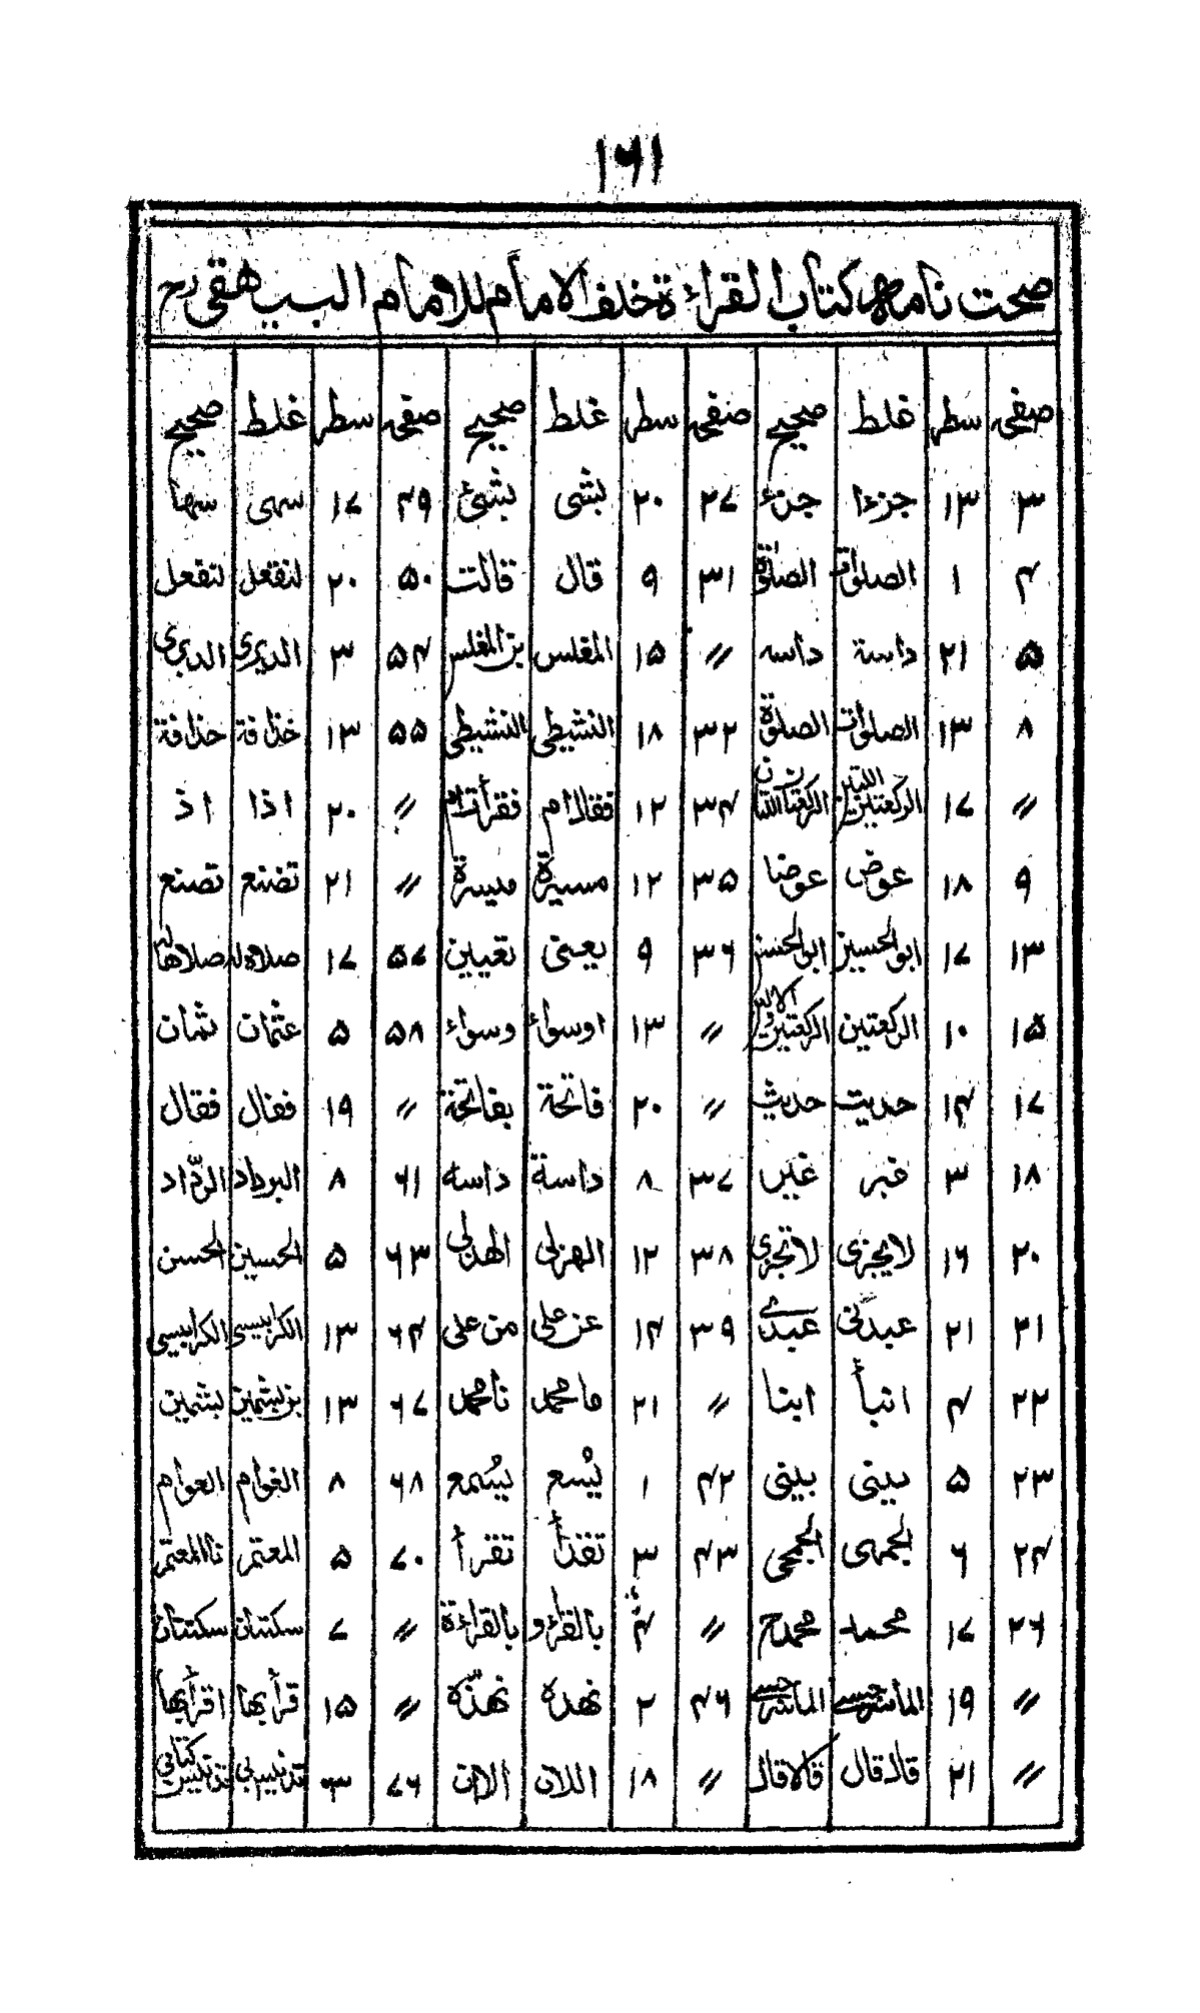 ۱۶۱
صحت نامہ کتاب القراءة خلف الامام للامام البیهقی رح
صفحہ سطر غلط صحیح صفحہ سطر غلط صحیح صفحہ سطر غلط صحیح
۳ ۱۳ جزءا جزء ۲۷ ۲۰ بشی بشئ ۴۹ ۱۷ سہی سہا
۴ ۱ الصلوات الصلوٰة ۳۱ ۹ قال قالت ۵۰ ۲۰ لنفعل لتفعل
۵ ۲۱ داسة داسہ 〃 ۱۵ المغلس بن المغلس ۵۴ ۳ الدیری الدبری
۸ ۱۳ الصلوات الصلوة ۳۲ ۱۸ النشیطی النشیطی ۵۵ ۱۳ خذافة حذافة
〃 ۱۷ الركعتین اللتین الركعتان اللتان ۳۴ ۱۲ فقال ام فقرأت ام 〃 ۲۰ اذا اذ
۹ ۱۸ عوض عوضا ۳۵ ۱۲ مسیرة میسرة 〃 ۲۱ تضنع تصنع
۱۳ ۱۷ ابو الحسین ابو الحسن ۳۶ ۹ یعنی تعیین ۵۷ ۱۷ صلاه له صلاها له
۱۵ ۱۰ الركعتین الركعتین الا 〃 ۱۳ اوسواء وسواء ۵۸ ۵ عثمان ثمان
۱۷ ۱۴ حدیت حدیث 〃 ۲۰ فاتحة بفاتحة 〃 ۱۹ ففال فقال
۱۸ ۳ فبر غیر ۳۷ ۸ داسة داسه ۶۱ ۸ البرداد الردّاد
۲۰ ۱۶ لایجزی لاتجزی ۳۸ ۱۲ الهزلی الهذلی ۶۳ ۵ الحسین الحسن
۲۱ ۲۱ عبدنی عبدی ۳۹ ۱۴ عن علی من علی ۶۴ ۱۳ الكرابیسی الكرابیسی
۲۲ ۴ انبأ ابنا 〃 ۲۱ ما محمد نا محمد ۶۷ ۱۳ بن بشمین بشمین
۲۳ ۵ بیتی بینی ۴۲ ۱ یسع یسمع ۶۸ ۸ الغوام العوام
۲۴ ۶ الجمهی الجمحی ۴۳ ۳ تقذأ تقرأ ۷۰ ۵ المعتمر نا المعتمر
۲۶ ۱۷ محمد محمد ح 〃 ۴ بالقراءو بالقراءة 〃 ۷ سكتتان سكتتان
〃 ۱۹ الماسرجسی ۴۶ ۲ نهده نهذّه 〃 ۱۵ قرأ بها اقرأ بها
〃 ۲۱ قال قال قالا قال 〃 ۱۸ اللان الان ۷۶ ۳